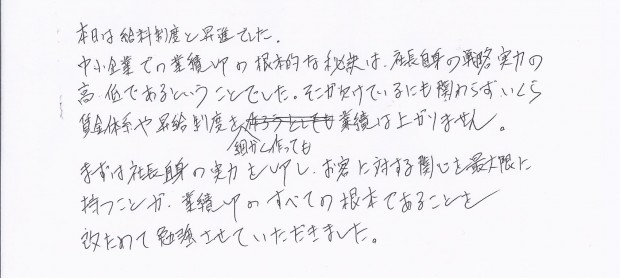 本日は給料制度と昇進でした。
中小企業での業績UPの根本的な秘訣は、社長自身の戦略実力の
高低であるということでした。そこが欠けているにも関わらずいくら
賃金体系や昇給制度を作ろうとしても業績は上がりません。
細かく作っても
まずは社長自身の実力をUPし、お客に対する関心を最大限に
持つことが、業績UPのすべての根本であることを
改ためて勉強させていただきました。